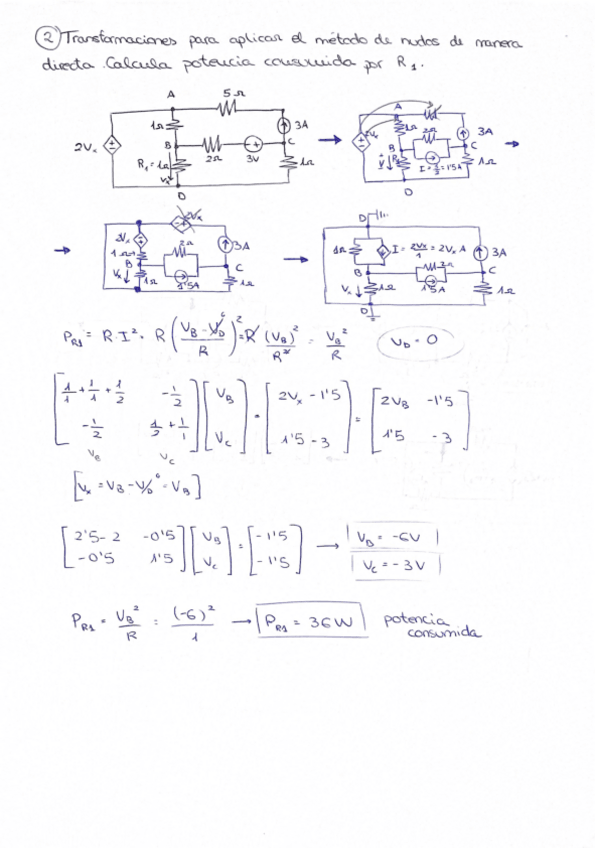 ② Transformaciones para aplicar el método de nudos de manera
directa. Calcula potencia consumida por R1.
A
5Ω
1Ω
3A
2Vx
B
2Ω
3V
C
R1=1Ω
Vx
1Ω
D
A
1Ω
2Ω
3A
2Vx
B
C
I = 3/2 = 1'5A
1Ω
D
2Vx
2Vx
1Ω
2Ω
3A
B
C
Vx
1Ω
1'5A
1Ω
D
1Ω
I = 2Vx/1 = 2Vx A
3A
B
2Ω
C
Vx
1Ω
1'5A
1Ω
D
PR1 = R·I² = R ((VB - VD)/R)² = R (VB)²/R² = VB²/R
VD = 0
[1/1 + 1/1 + 1/2   -1/2] [VB] = [2Vx - 1'5] = [2VB - 1'5]
[-1/2   1/2 + 1/1] [VC] [1'5 - 3] [1'5 - 3]
VB VC
[Vx = VB - VD = VB]
[2'5 - 2   -0'5] [VB] = [-1'5] → VB = -6V
[-0'5   1'5] [VC] [-1'5] VC = -3V
PR1 = VB²/R = (-6)²/1 → PR1 = 36W potencia
consumida